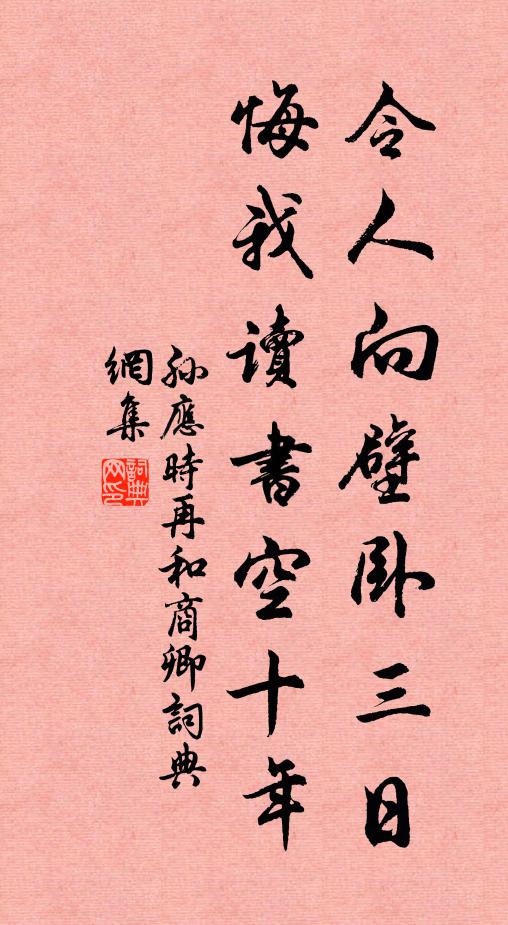 令人向壁卧三日
悔我读書空十年
孙應時再和商卿詞典
網集
詞典
网印